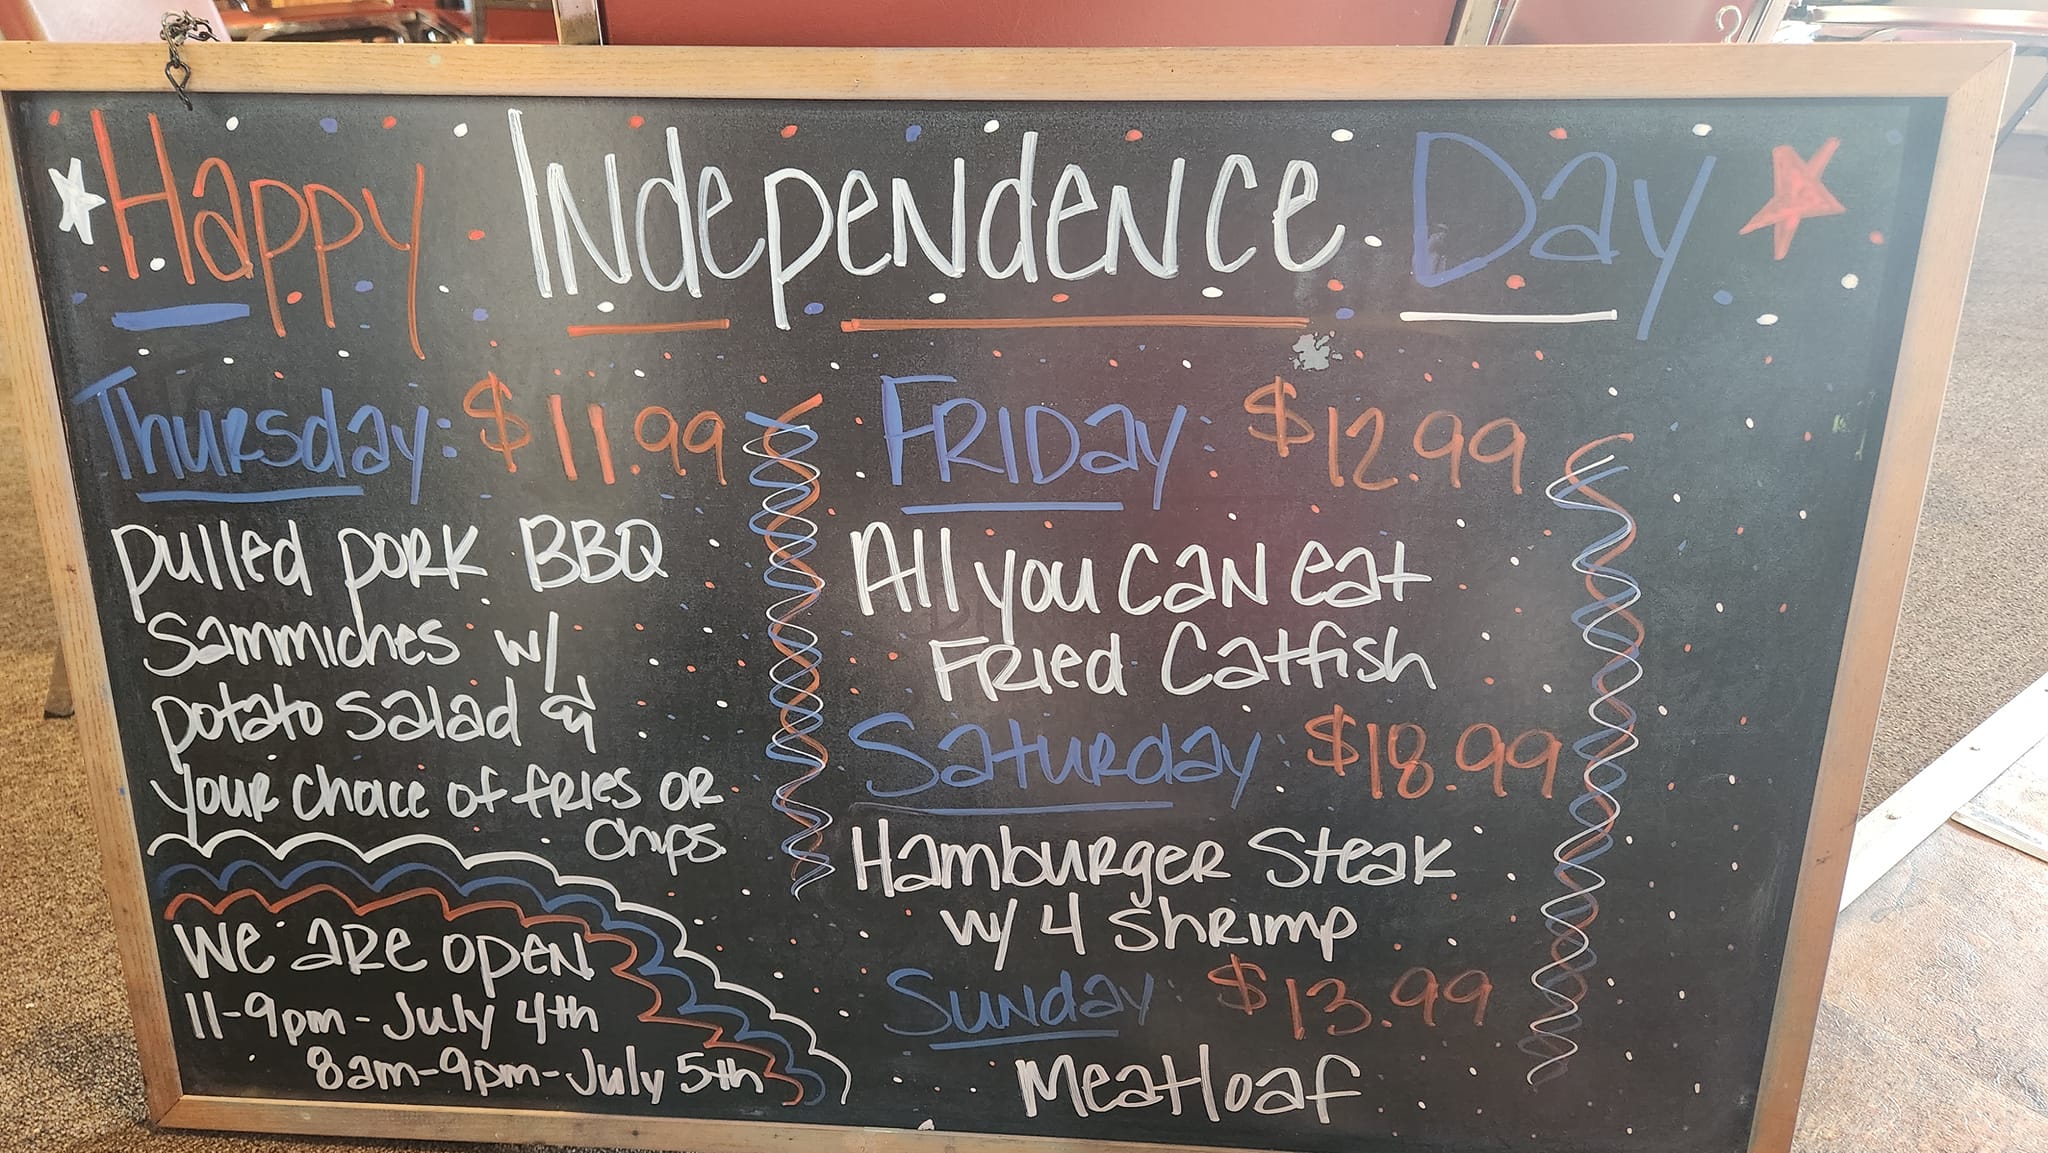 Happy Independence Day
Thursday: $11.99
pulled pork BBQ
Sammiches w/
potato salad &
your choice of fries or
chips.
We are open
11-9pm-July 4th
8am-9pm-July 5th
Friday: $12.99
All you can eat
Fried Catfish
Saturday: $18.99
Hamburger Steak
w/ 4 shrimp
Sunday: $13.99
Meatloaf